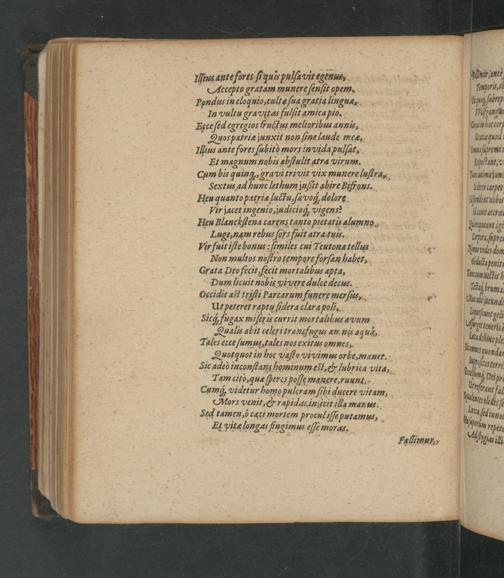 Illius ante fores si quis pulsavit egenus,
Accepto gratam munere sensit opem.
Pondus in eloquio, cultæ sua gratia linguæ,
In vultu gravitas fulsit amica pio.
Ecce sed egregios fructus melioribus annis,
Quos patriæ junxit non sine laude meæ,
Illius ante fores subitò mors invida pulsat,
Et magnum nobis abstulit atra virum.
Cum bis quinq, gravi trivit vix munere lustra,
Sextus ad hunc lethum jussit abire Bifrons.
Heu quanto patriæ luctu, sævoq, dolore
Vir jacet ingenio, judicioq, vigens?
Heu Blanckstena carens tanto pietatis alumno
Luge, nam rebus sors fuit atra tuis.
Vir fuit iste bonus: similes cui Teutona tellus
Non multos nostro tempore forsan habet,
Grata Deo fecit, fecit mortalibus apta,
Dum licuit nobis vivere dulce decus.
Occidit ast tristi Parcarum funere mersus,
Ut peteret raptu sidera clara poli.
Sicq, fugax miseris currit mortalibus ævum
Qualis abit celeri transfugus amnis aquâ,
Tales ecce sumus, tales nos exitus omnes,
Quotquot in hoc vasto vivimus orbe, manet.
Sic adeò inconstans hominum est, & lubrica vita,
Tam citò, quæ speres posse manere, ruunt.
Cumq, videtur homo pulcram sibi ducere vitam,
Mors venit, & rapidas injicit illa manus.
Sed tamen, ô cæci mortem procul isse putamus,
Et vitæ longas fingimus esse moras.
Fallimur